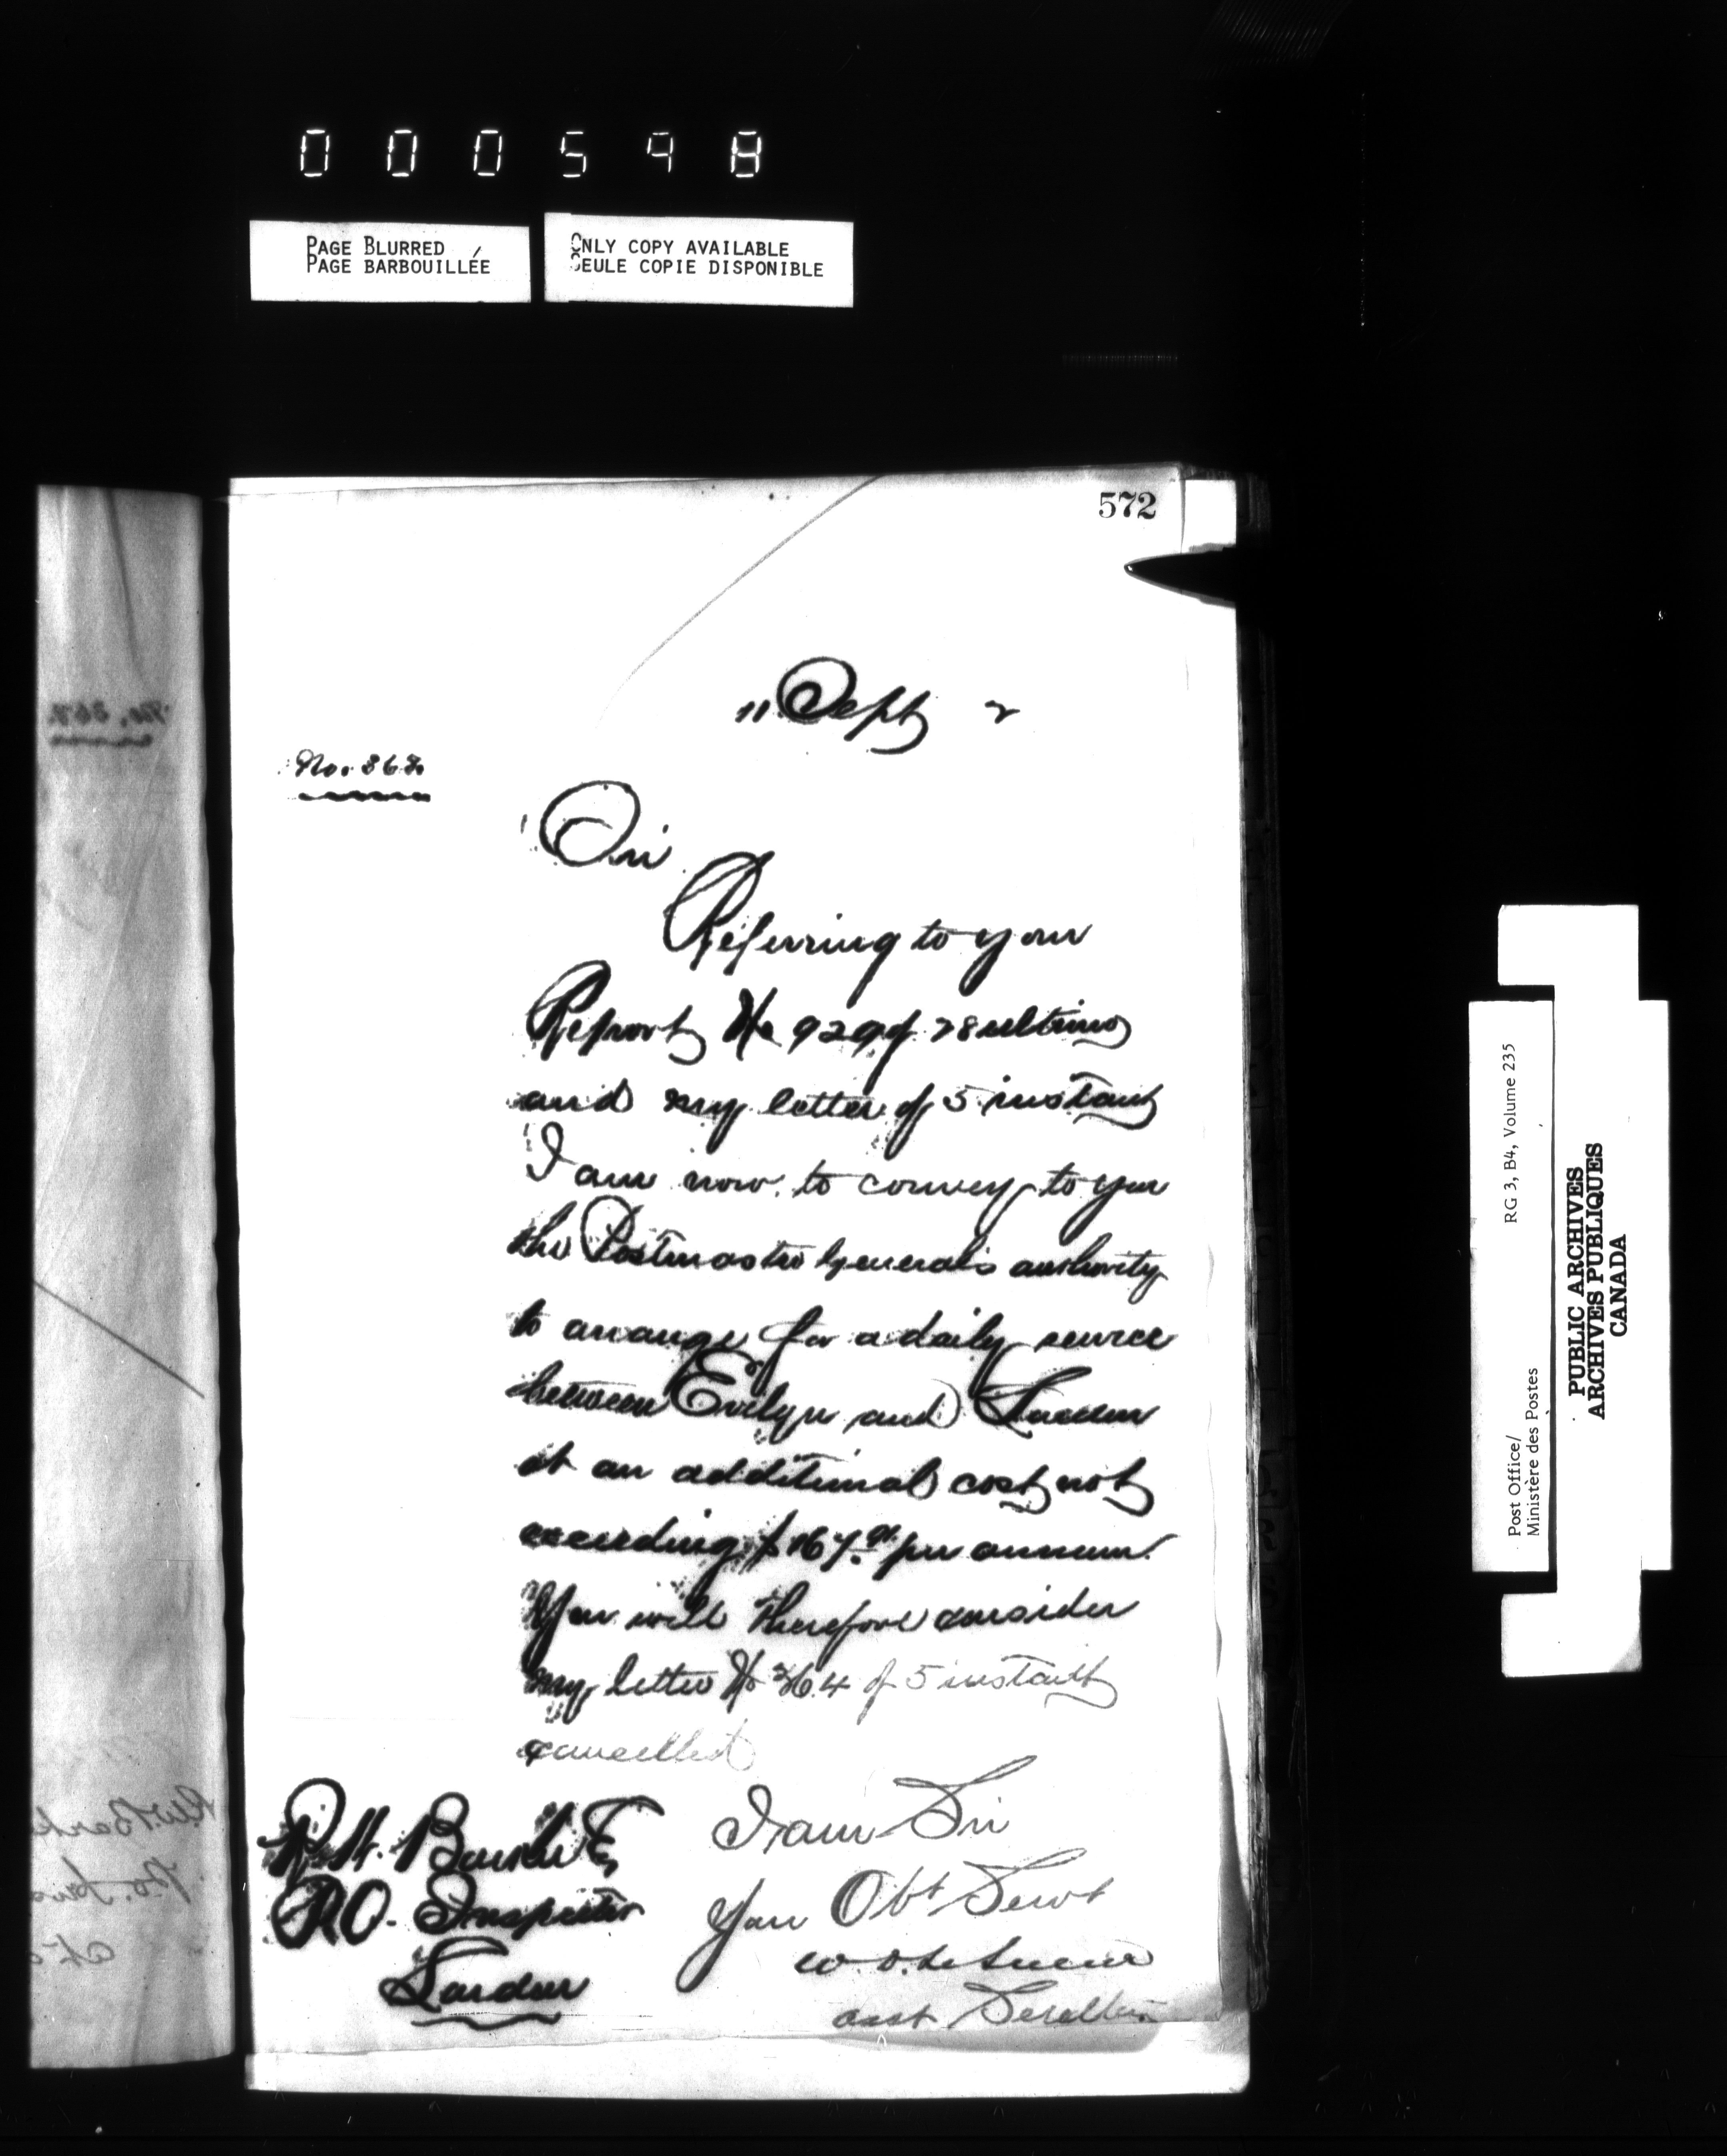 000598
PAGE BLURRED
PAGE BARBOUILLÉE
ONLY COPY AVAILABLE
SEULE COPIE DISPONIBLE
572
11 Sept 2
No. 367
Sir
Referring to your
Report No 929 of 28 ultimo
and my letter of 5 instant
I am now to convey to you
the Postmaster General's authority
to arrange for a daily service
between Evelyn and London
at an additional cost not
exceeding $167.00 per annum.
You will therefore consider
my letter No 364 of 5 instant
cancelled
I am Sir
Your Obt Servt
W. D. LeSueur
R. W. Barker E
P.O. Inspector
London
Post Office/
Ministère des Postes
RG 3, B4, Volume 235
PUBLIC ARCHIVES
ARCHIVES PUBLIQUES
CANADA